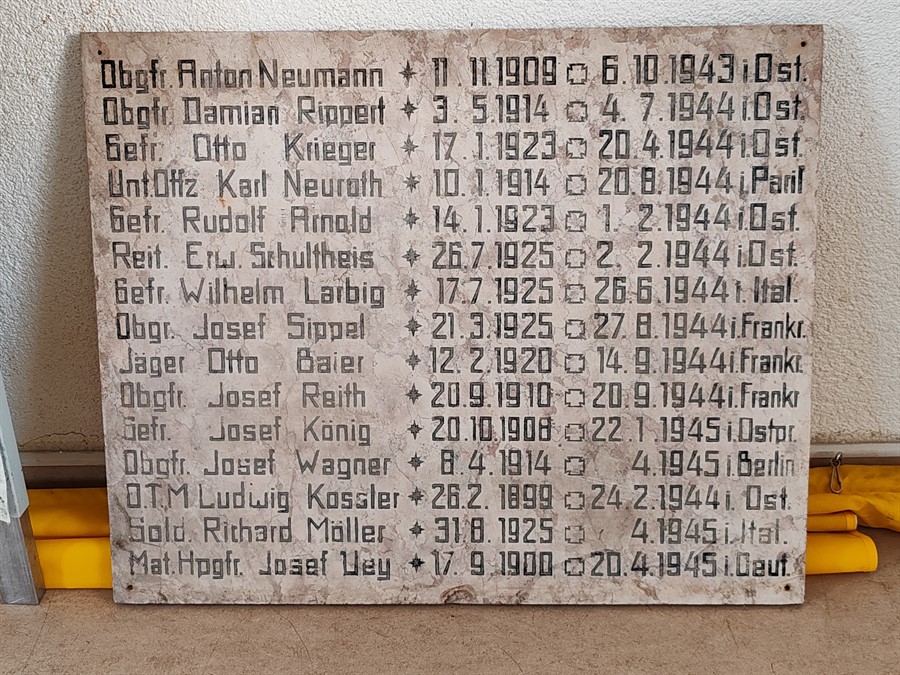 Obgfr. Anton Neumann ✶ 11 11.1909 ✠ 6.10.1943 i.Ost.
Obgfr. Damian Rippert ✶ 3. 5.1914 ✠ 4. 7.1944 i.Ost.
Gefr. Otto Krieger ✶ 17 1.1923 ✠ 20.4.1944 i.Ost.
Unt.Offz Karl Neuroth ✶ 10.1.1914 ✠ 20.8.1944 i.
Gefr. Rudolf Arnold ✶ 14.1.1923 ✠ 1. 2.1944 i.Ost.
Reit. Erw. Schultheis ✶ 26.7 1925 ✠ 2. 2.1944 i.Ost.
Gefr. Wilhelm Larbig ✶ 17.7.1925 ✠ 26.6.1944 i. Ital.
Obgr. Josef Sippel ✶ 21.3.1925 ✠ 27.8.1944 i.Frankr.
Jäger Otto Baier ✶ 12.2.1920 ✠ 14.9.1944 i.Frankr.
Obgfr. Josef Reith ✶ 20.9.1910 ✠ 20.9.1944 i.Frankr
Gefr. Josef König ✶ 20.10.1908 ✠ 22.1.1945 i.Ostpr.
Obgfr. Josef Wagner ✶ 8.4.1914 ✠ 4.1945 i.Berlin
O.T.M Ludwig Kossler ✶ 26.2. 1899 ✠ 24.2.1944 i. Ost.
Sold. Richard Möller ✶ 31.8.1925 ✠ 4.1945 i. Ital.
Mat.Hpgfr. Josef Uey ✶ 17. 9.1900 ✠ 20.4.1945 i.Deut.